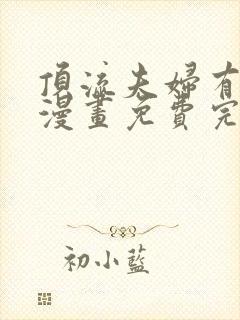 頂流夫婦有
漫畫免費完
初小藍